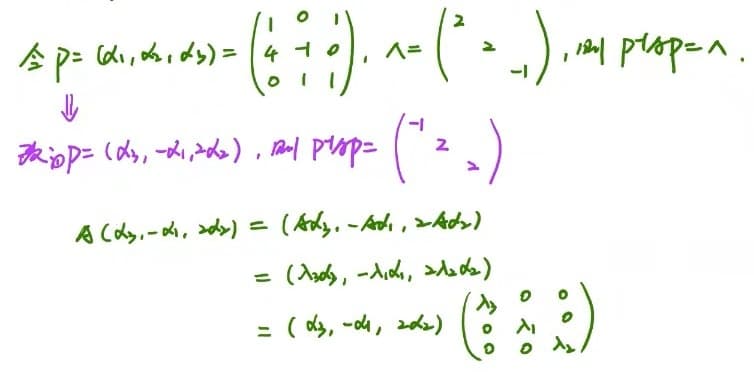 令 P = (α₁, α₂, α₃) = ( 1 0 1 ; 4 -1 0 ; 0 1 1 ), Λ = ( 2 ; 2 ; -1 ), 则 P⁻¹AP = Λ.
⇓
改设 P = (α₃, -α₁, 2α₂), 则 P⁻¹AP = ( -1 ; 2 ; 2 )
A(α₃, -α₁, 2α₂) = (Aα₃, -Aα₁, 2Aα₂)
= (λ₃α₃, -λ₁α₁, 2λ₂α₂)
= (α₃, -α₁, 2α₂) ( λ₃ 0 0 ; 0 λ₁ 0 ; 0 0 λ₂ )